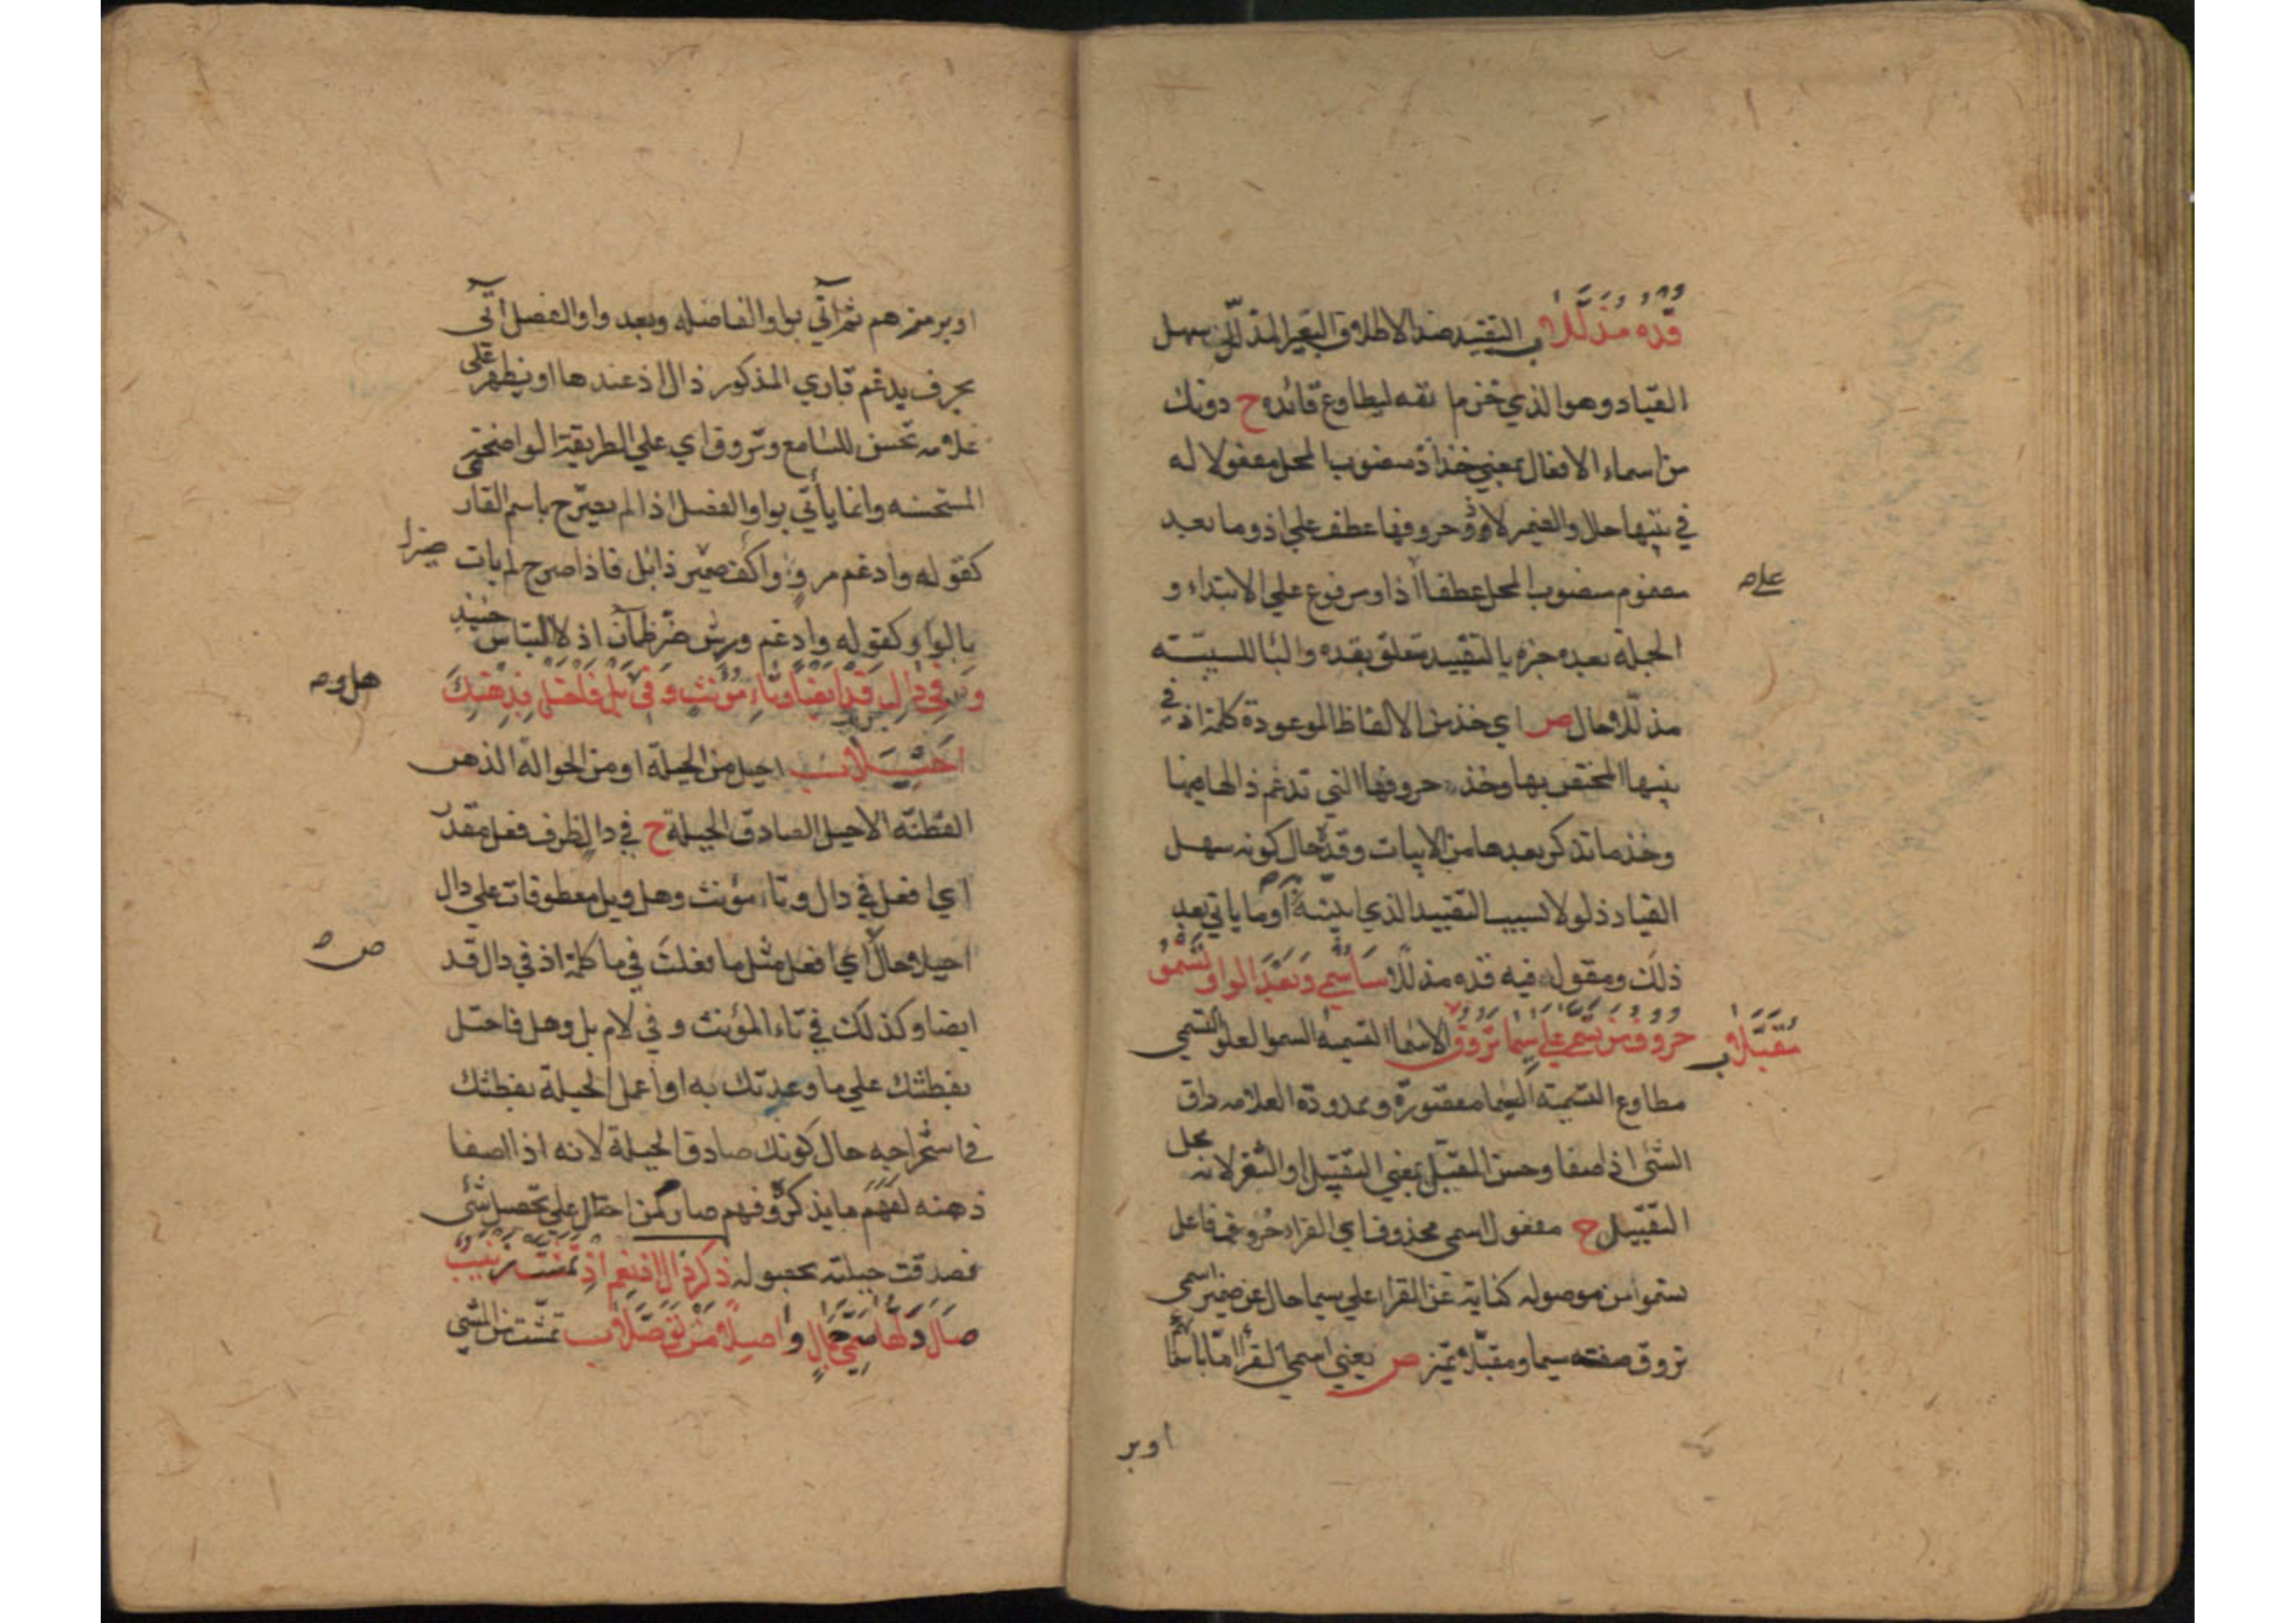 قده مذللا ب التقييد ضد الاطلاق البعير المذلل سهل
القياد وهو الذي خزم انفه ليطاوع قائده ح دونك
من اسماء الافعال بمعني خذ اذ منصوب المحل مفعولا له
في بيتها حال والضمير لاذ وحروفها عطف علي اذ وما بعد
علے صہ
مفعوم منصوب المحل عطفا اذ او مرفوع علي الابتداء و
الجملة بعده خبره بالتقييد متعلق بقده والبا للسببية
مذللا حال ص اي خذ من الالفاظ الموعودة كلمة اذ في
بيتها المختص بها وخذ حروفها التي تدغم ذالها فيها
وخذ ما تذكر بعدها من الابيات وقده حال كونه سهل
القياد ذلولا بسبب التقييد الذي ابينه او ما ياتي بعد
ذلك ومقول فيه قده مذللا ساسمي وبعد الواو تسمو
حروف من تسمي علي سيما تروق مقبلا ب الاسما التسمية السمو العلو التسمي
مطاوع التسمية السيما مقصورة وممدودة العلامه راق
الشئ اذا صفا وحسن المقبل بمعني التقبيل او الثغر لانه محل
التقبيل ح مفعول اسمي محذوف اي القراء حروف فاعل
تسمو من موصوله كناية عن القراء علي سيما حال عن ضمير اسمي
تروق صفته سيما ومقبلا تميز ص يعني اسمي القراء اما باسمائهم
اوبر
اوبرمزهم ثم آتي بواو الفاصله وبعد واو الفصل آتي
بحرف يدغم قاري المذكور ذال اذ عندها او يظهر علي
علامه تحسن للسامع وتروق اي علي الطريقة الواضحة
المستحسنه وانما يأتي بواو الفصل اذا لم يصرح باسم القار
كقوله وادغم مرو واكف ضير ذابل فاذا صرح لم يات
بالواو كقوله وادغم ورش ضر ظمان اذ لا التباس حينئذ
وفي دال قد ايضا وتاء مؤنث وفي بل فاحتل بذهنك
هل وصہ
احيلا ب احيل من الحيلة او من الحوالة الذهن
الفطنة الاحيل الصادق الحيلة ح في دال ظرف فعل مقدر
اي افعل في دال وتاء مؤنث وهل وبل معطوفات علي دال
احيلا حال اي افعل مثل ما فعلت في ما كلمة اذ في دال قد
ص
ايضا وكذلك في تاء المؤنث و في لام بل وهل فاحتل
بفطنتك علي ما وعدتك به او اعمل الحيلة بفطنتك
في استخراجه حال كونك صادق الحيلة لانه اذا اصفا
ذهنه لفهم ما يذكر وفهم صار كمن احتال علي تحصيل شئ
فصدقت حيلته بحصوله ذكر ذال اذ نعم اذ تمشت زينب
صال دلها سمي جمال واصلا من توصلا ب تمشت من المشي